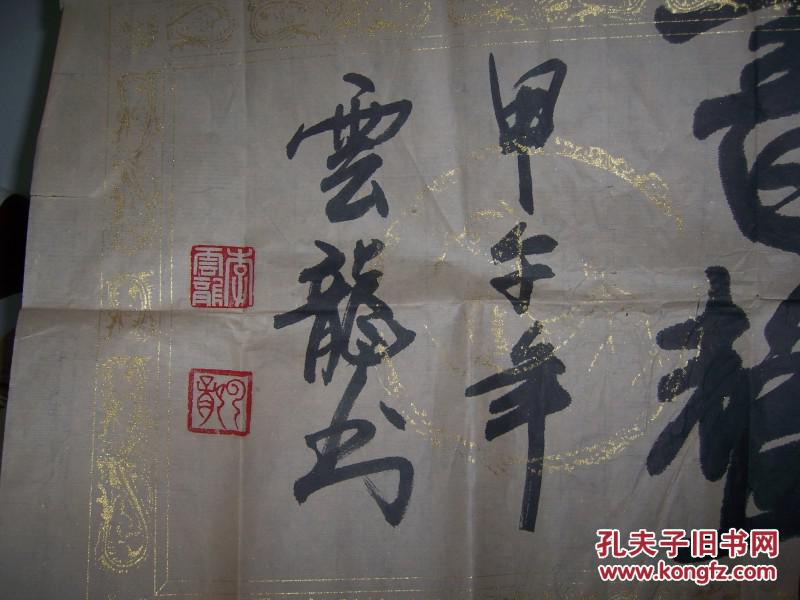 甲午年
雲龍书
李雲龍
孔夫子旧书网
www.kongfz.com